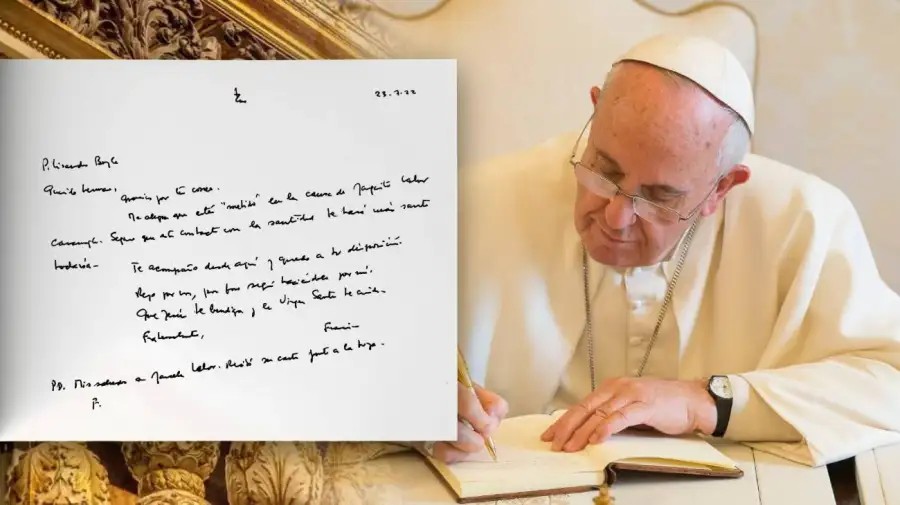 23.7.22
P. Lisandro Boyle
Querido hermano,
Gracias por tu correo.
Me alegra que esté "metido" en la causa de
Seguro que este contacto con la santidad te hará más santo
todavía.
Te acompaño desde aquí y quedo a tu disposición.
Rezo por vos, por favor seguí haciéndolo por mí.
Que Jesús te bendiga y la Virgen Santa te cuide.
Fraternalmente,
PD. Mis saludos a Labor. Recibí su carta junto a la tuya.
F.